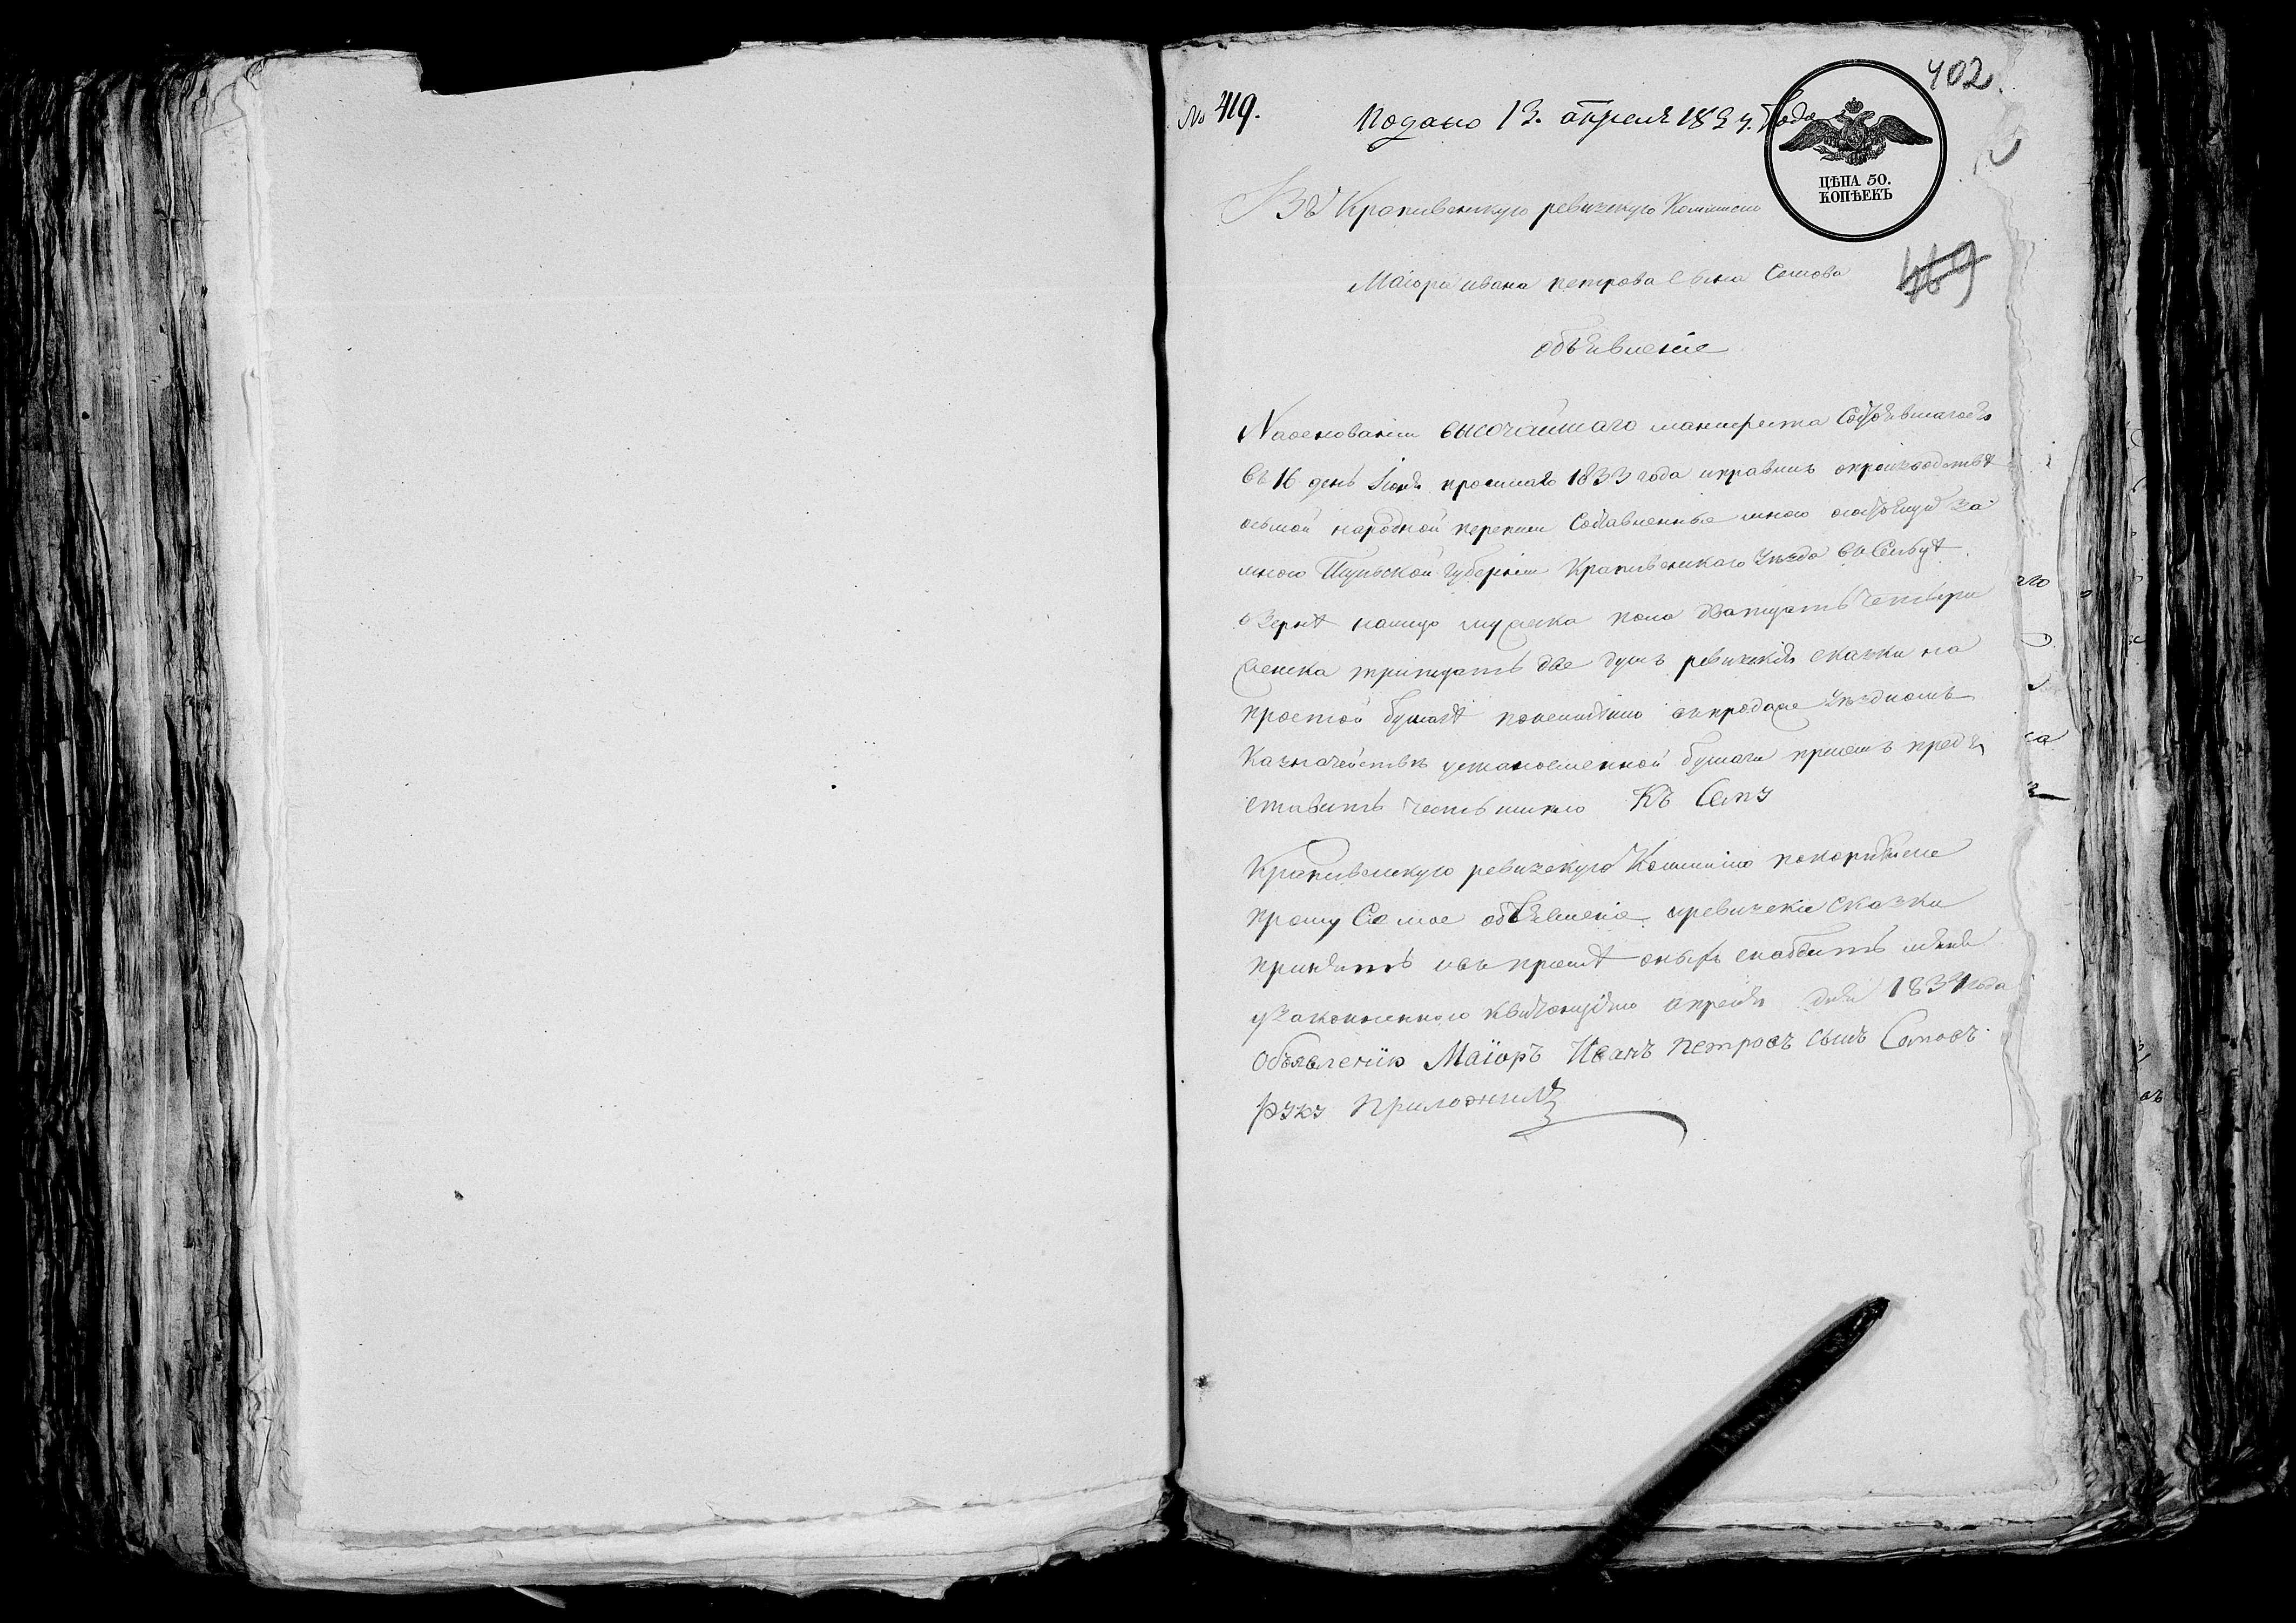 402
№ 419. Подано 13. апреля 1834. Года
ЦѢНА 50.
КОПѢЕКЪ
Въ Крапивенскую ревизскую Комисию
419
Маіора ивана петрова Сына Сомова
объявленіе
Наосновании высочайшаго манифеста Состоявшагося
въ 16 день Іюня прошлаго 1833 года иправилъ опроизводствѣ
осьмой народной переписи Составленные мною состоящиѯ за
мною Тульской Губерніи Крапивенскаго уѣзда въ Сельцѣ
озеркѣ налицо мужеска пола дватцать четыри
женска тритцать две душъ ревизскія сказки на
простой бумагѣ понеимѣнию впродаже уѣздномъ
Казначействѣ установленной бумаги присемъ пред
ставить честь имѣю Къ Сему
Крапивенскую ревизскую Коммисию покорнѣйше
прошу Сие мое объявленіе иревизския сказки
принять ивъ приемѣ оныхъ снабдить меня
узаконенною квитанциею апреля дня 1834 года
Объявленiю Маiоръ Иванъ петровъ сынъ Сомовъ
руку приложилъ